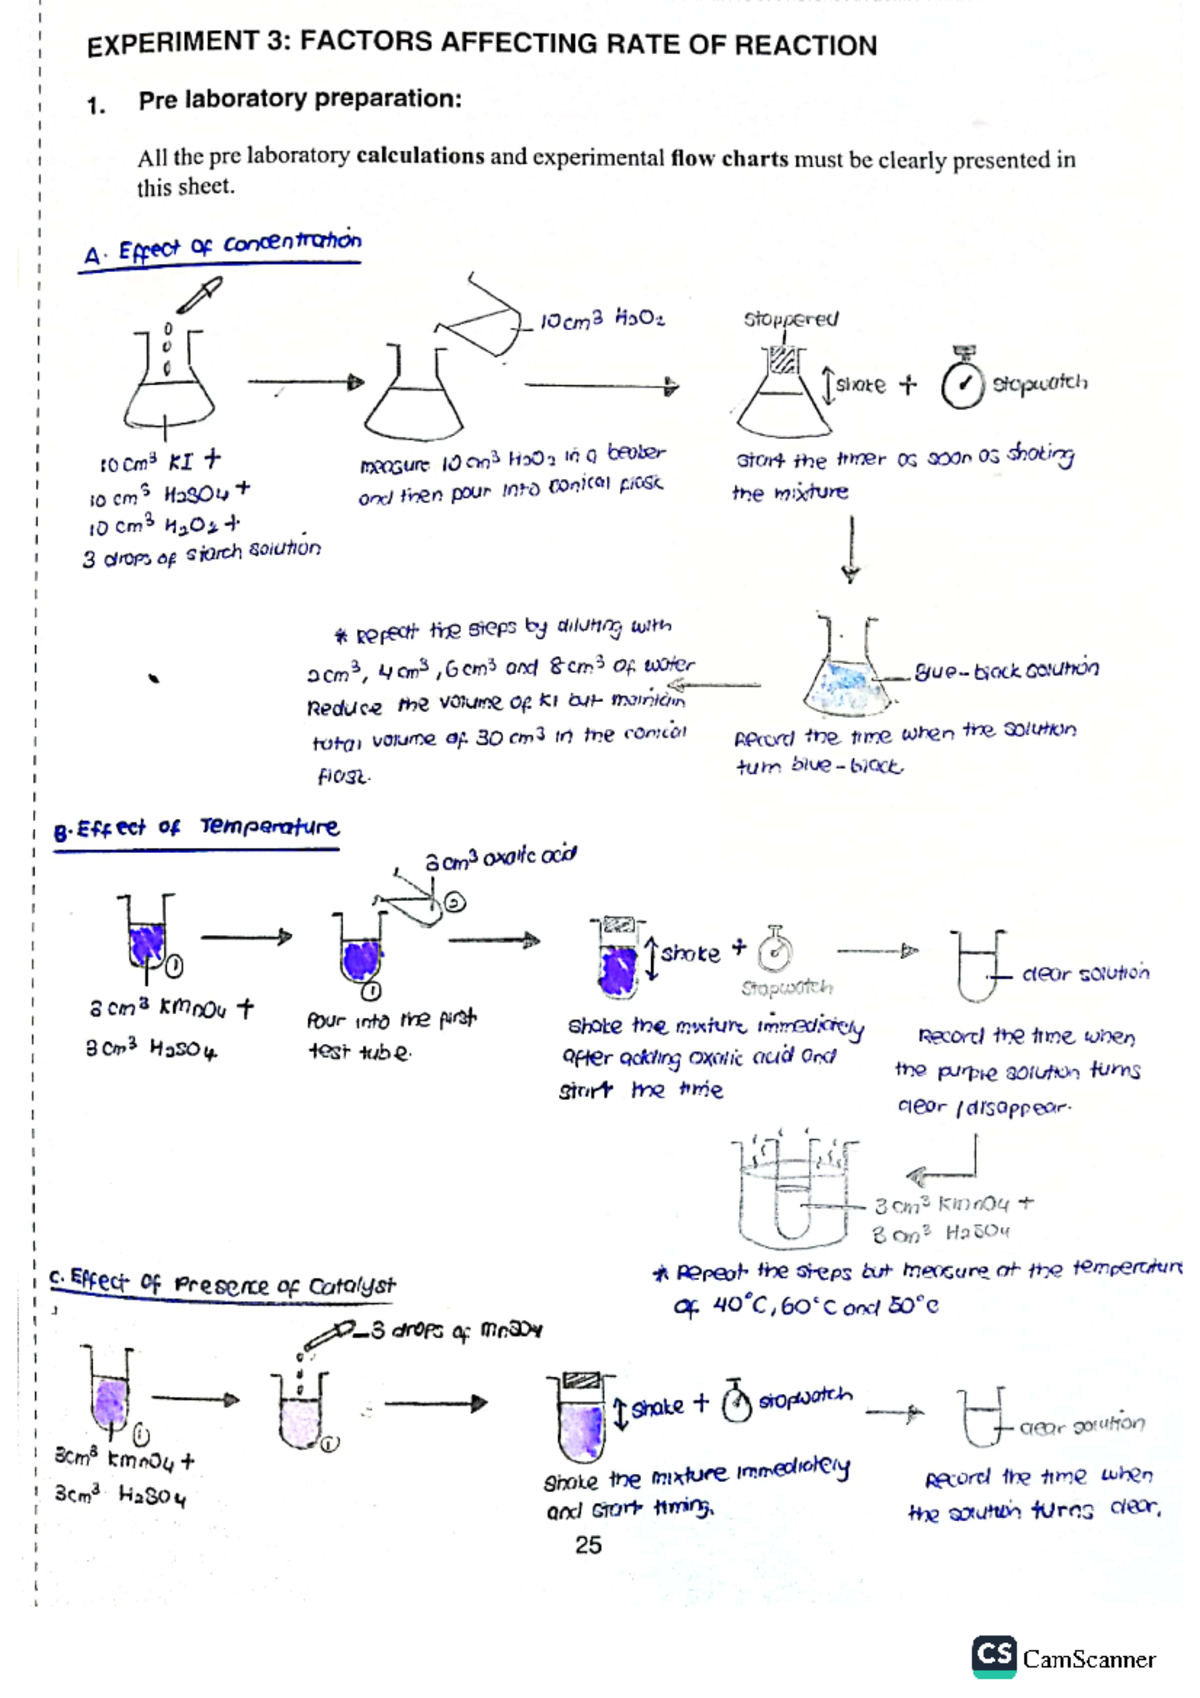 EXPERIMENT 3: FACTORS AFFECTING RATE OF REACTION
1. Pre laboratory preparation:
All the pre laboratory calculations and experimental flow charts must be clearly presented in
this sheet.
A. Effect of Concentration
10cm³ H2O2
stoppered
shake + stopwatch
10 cm³ KI +
10 cm³ H2SO4 +
10 cm³ H2O2 +
3 drops of starch solution
measure 10 cm³ H2O2 in a beaker
and then pour into conical flask
start the timer as soon as shaking
the mixture
* Repeat the steps by diluting with
2cm³, 4cm³, 6cm³ and 8cm³ of water
Reduce the volume of KI but maintain
total volume of 30 cm³ in the conical
flask.
Blue-black solution
Record the time when the solution
turn blue-black.
B. Effect of Temperature
3cm³ oxalic acid
2
1
3cm³ KMnO4 +
3cm³ H2SO4
1
Pour into the first
test tube.
shake +
Stopwatch
Shake the mixture immediately
after adding oxalic acid and
start the time
clear solution
Record the time when
the purple solution turns
clear / disappear.
3cm³ KMnO4 +
3cm³ H2SO4
* Repeat the steps but measure at the temperature
of 40°C, 60°C and 50°C
C. Effect of Presence of Catalyst
3 drops of MnSO4
1
3cm³ KMnO4 +
3cm³ H2SO4
1
Shake + stopwatch
Shake the mixture immediately
and start timing.
clear solution
Record the time when
the solution turns clear.
25
CS CamScanner